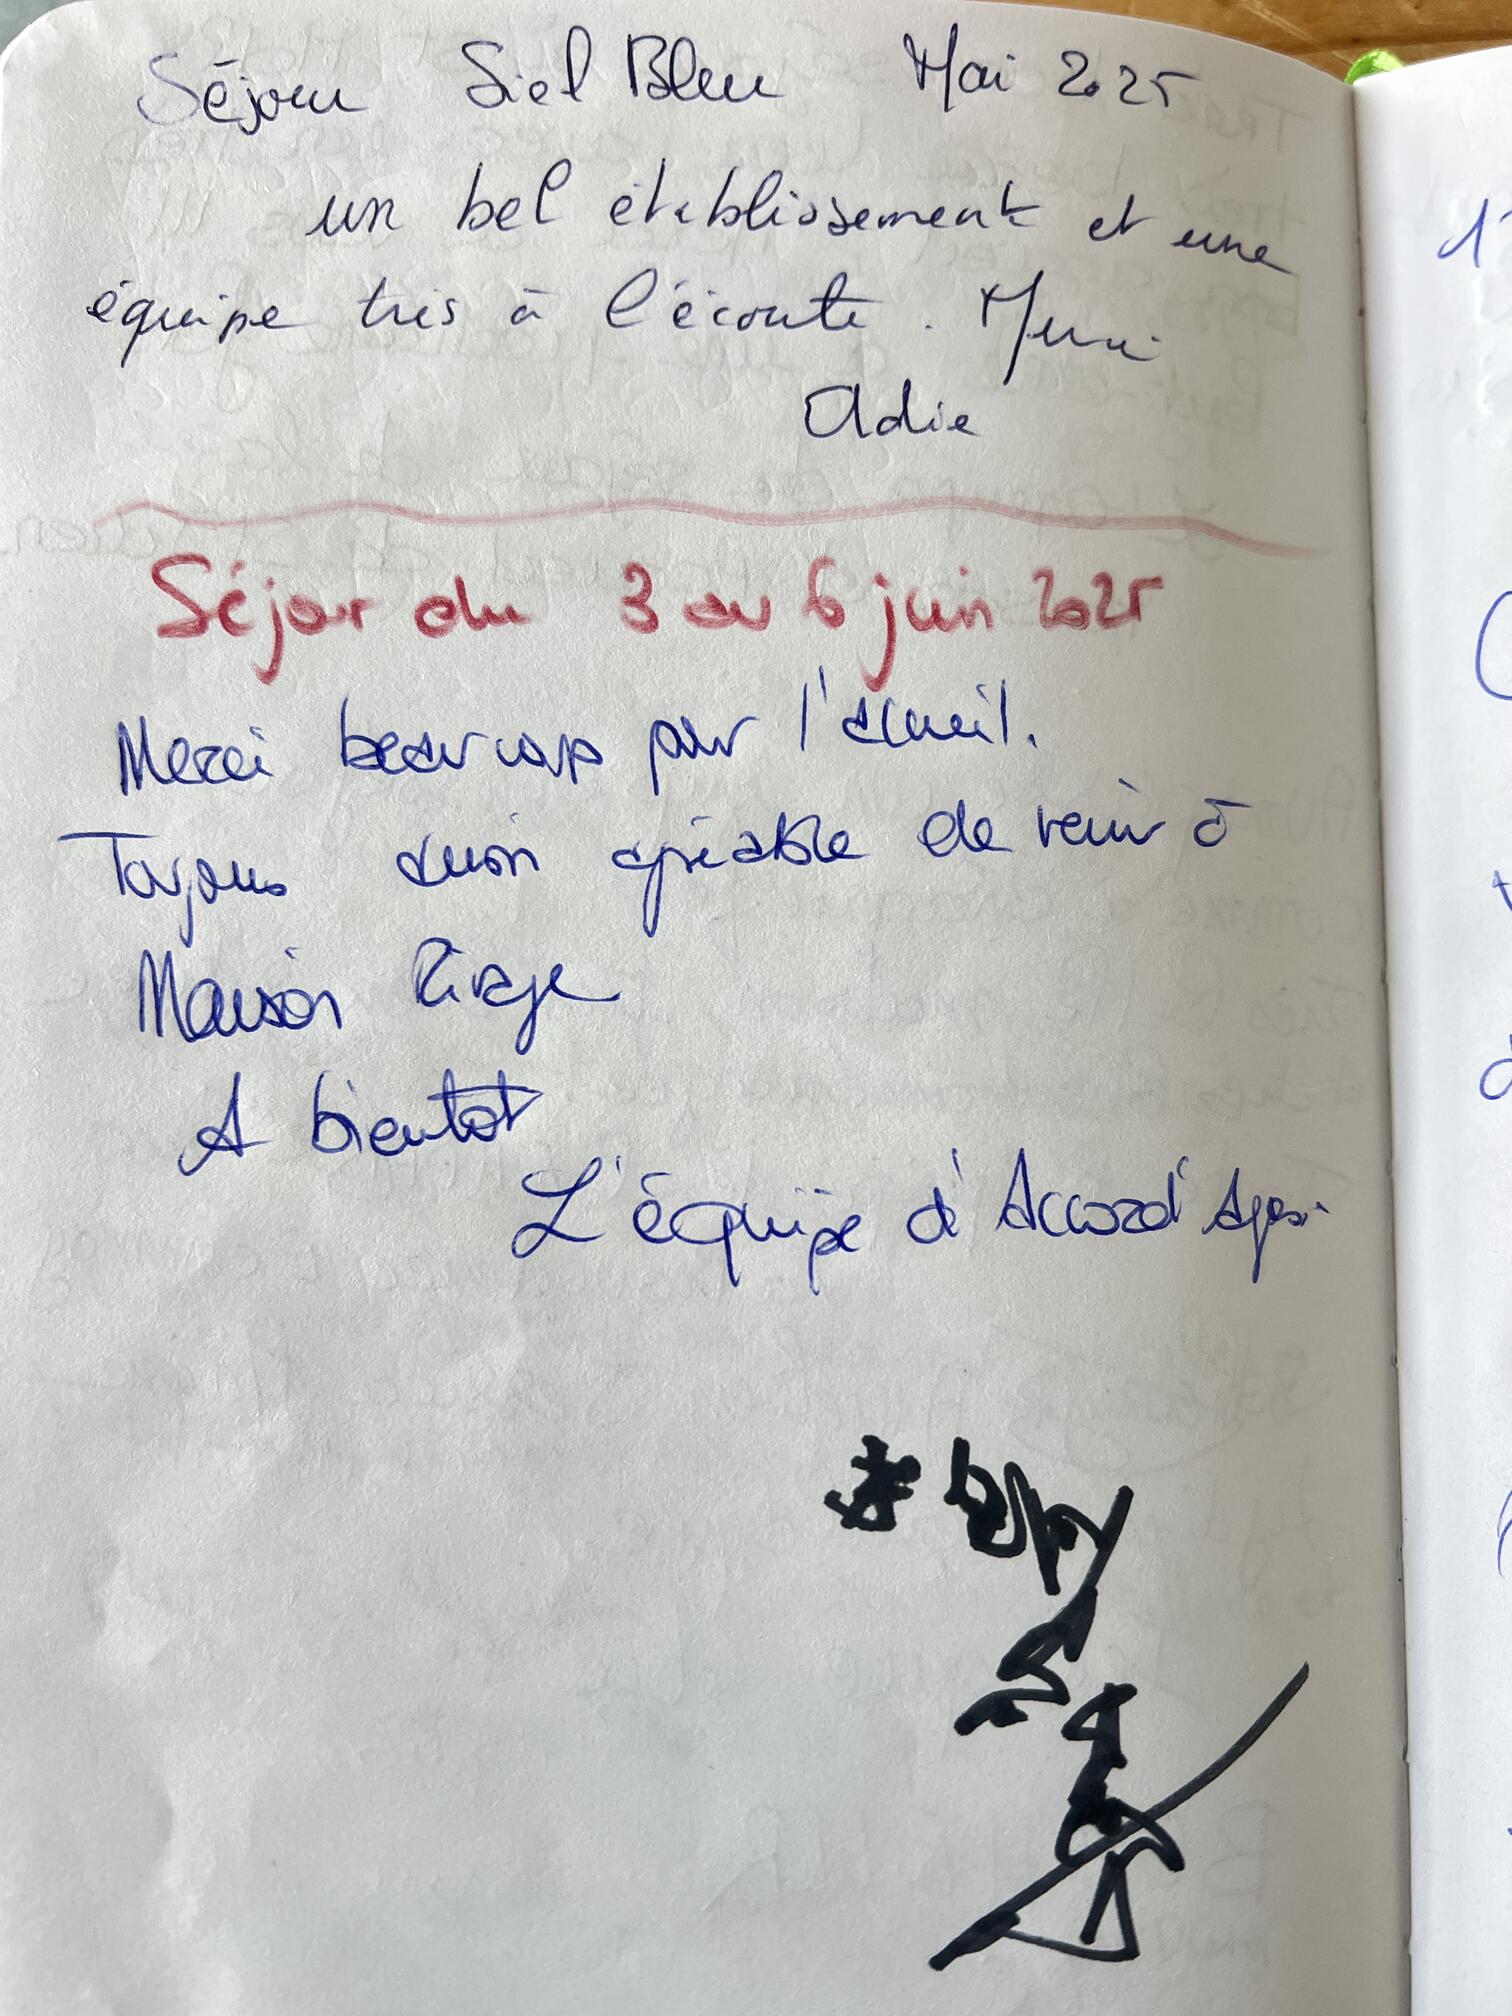 Séjour Siel Bleu Mai 2025
un bel établissement et une
équipe très à l'écoute. Merci
Odie
Séjour du 3 au 6 juin 2025
Merci beaucoup pour l'accueil.
Toujours aussi agréable de venir à
Maison Rivage
A bientôt
L'équipe d'Accord'Ages.